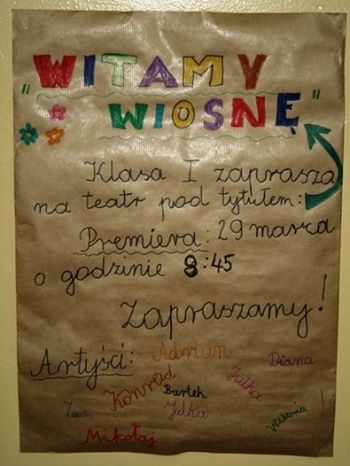 "WITAMY
WIOSNĘ"
Klasa I zaprasza
na teatr pod tytułem:
Premiera: 29 marca
o godzinie 8:45
Zapraszamy!
Artyści: Adrian
Diana
Konrad
Julka
Bartek
Zuzia
Julka
Wiktoria
Mikołaj